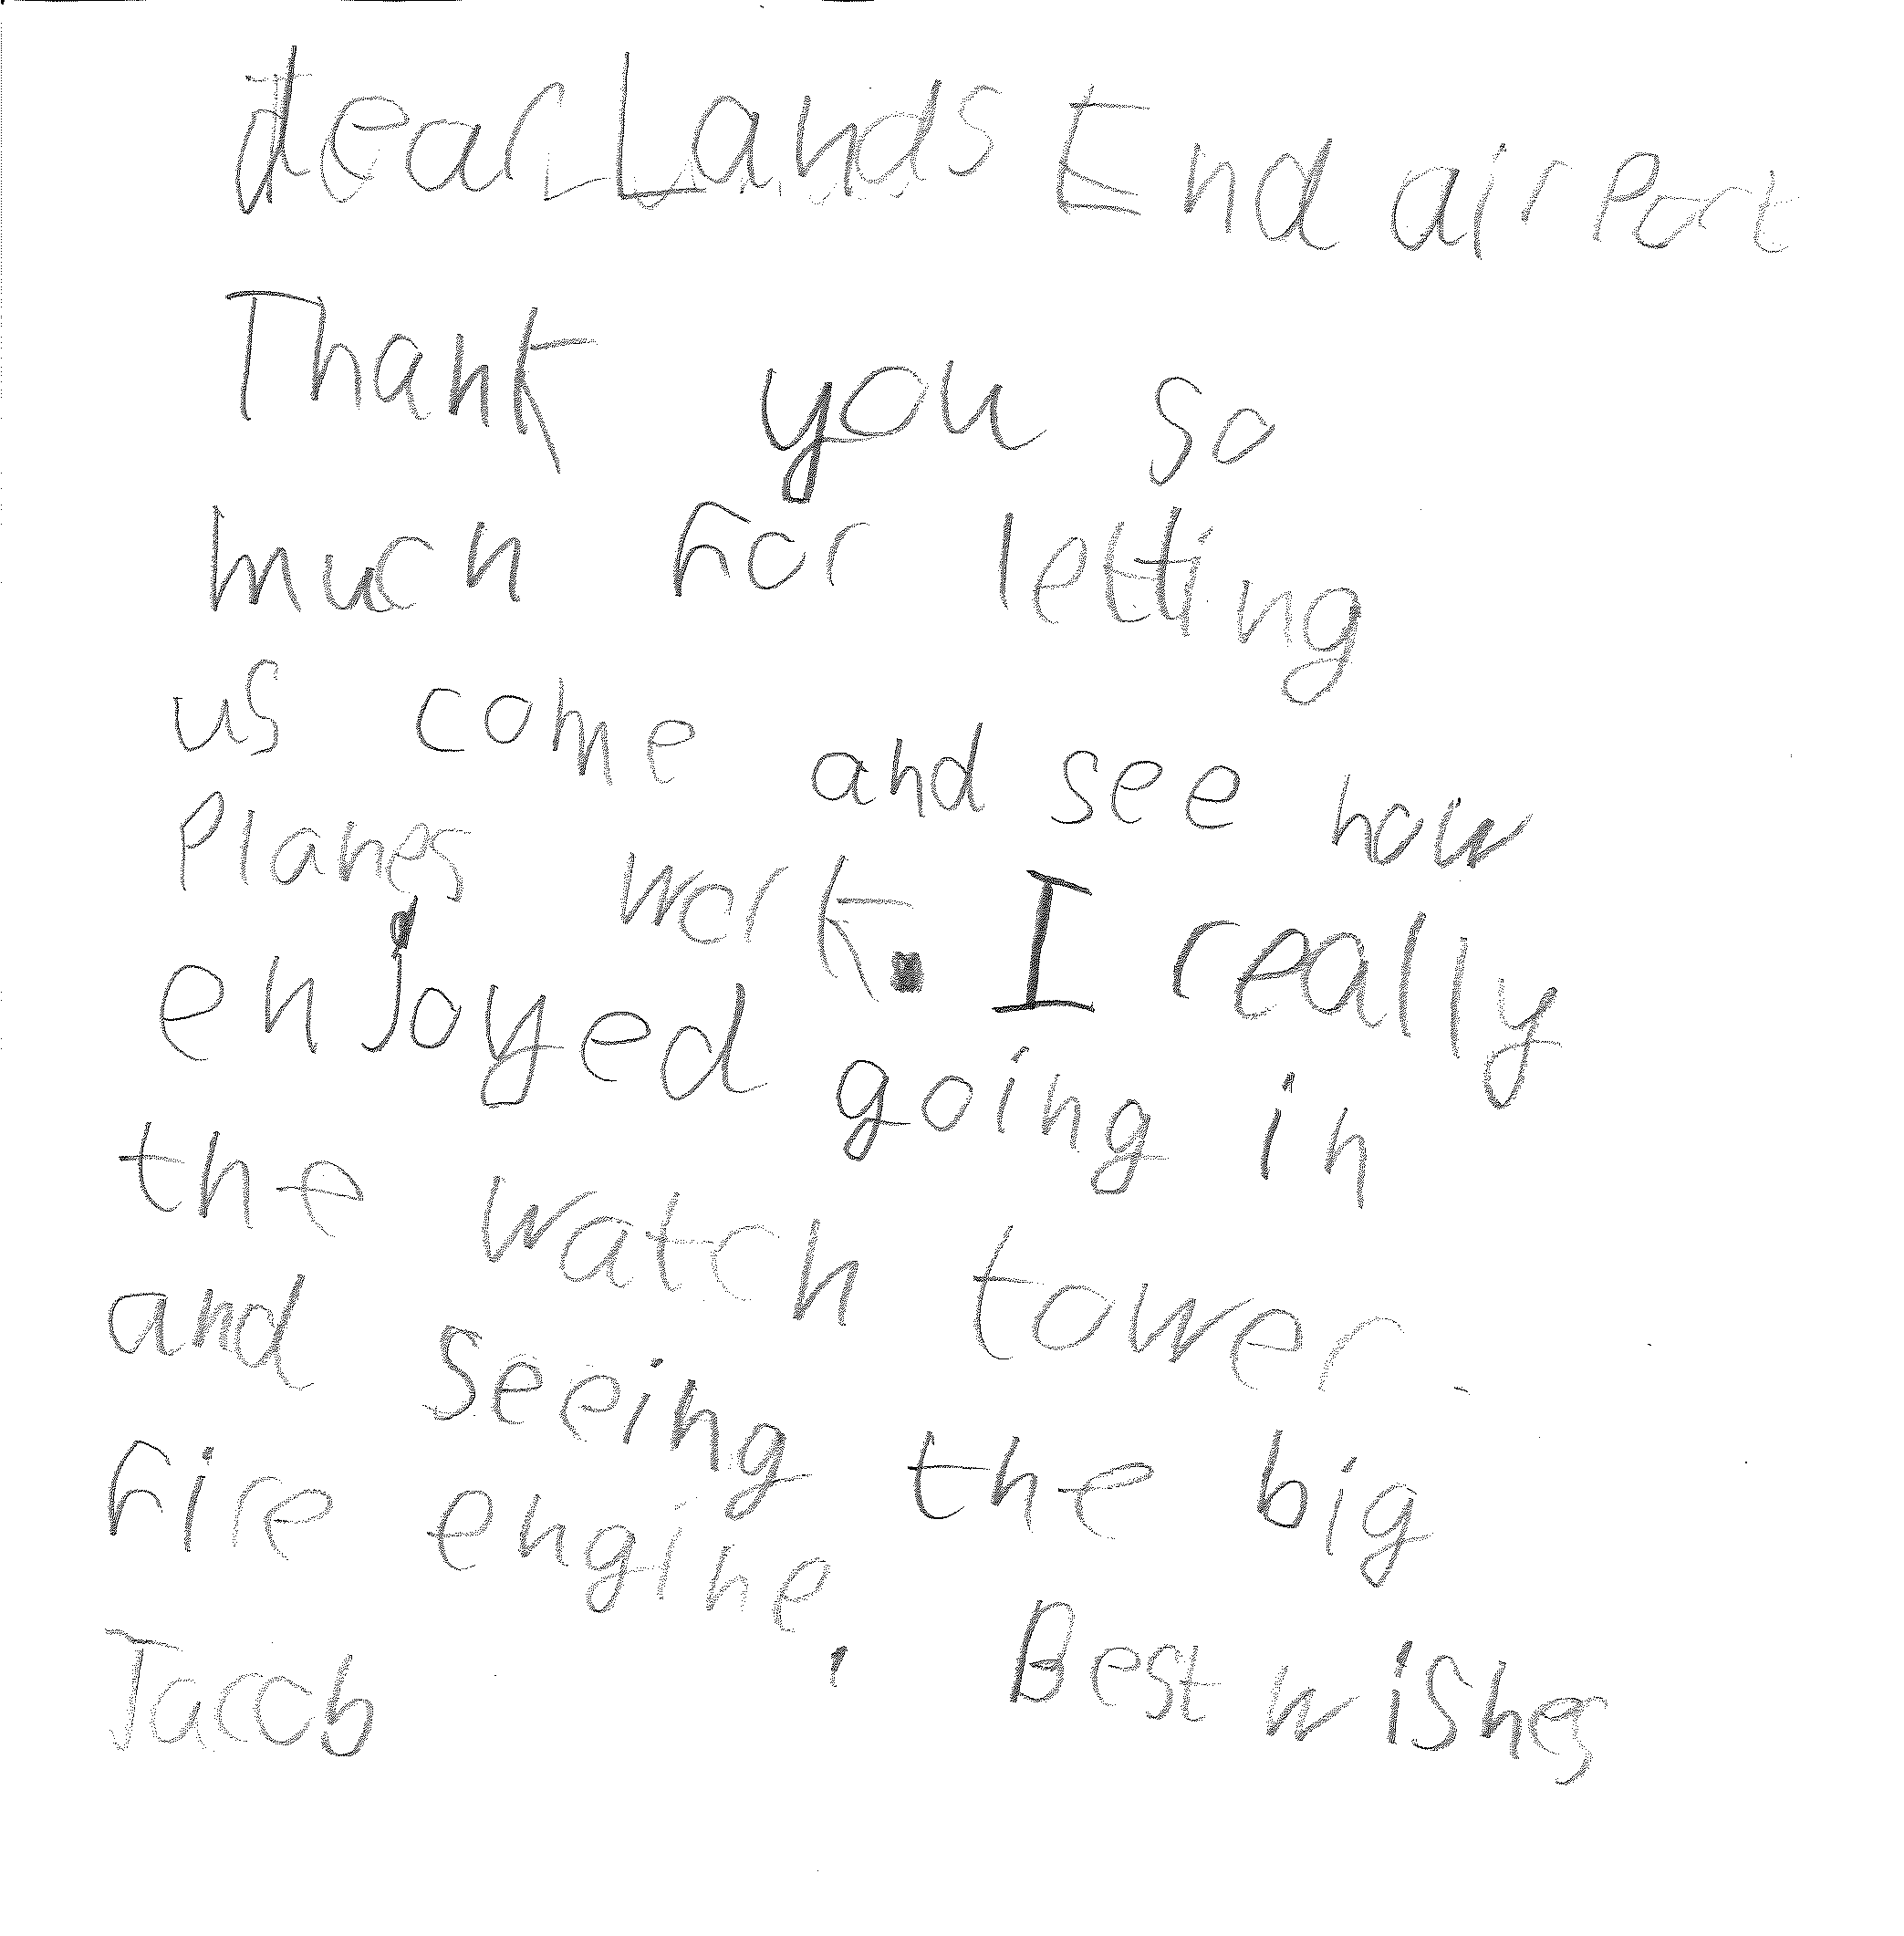 dear Lands End airport
Thank you so
much for letting
us come and see how
Planes work. I really
enjoyed going in
the watch tower.
and seeing the big
fire engine.
Best wishes
Jacob